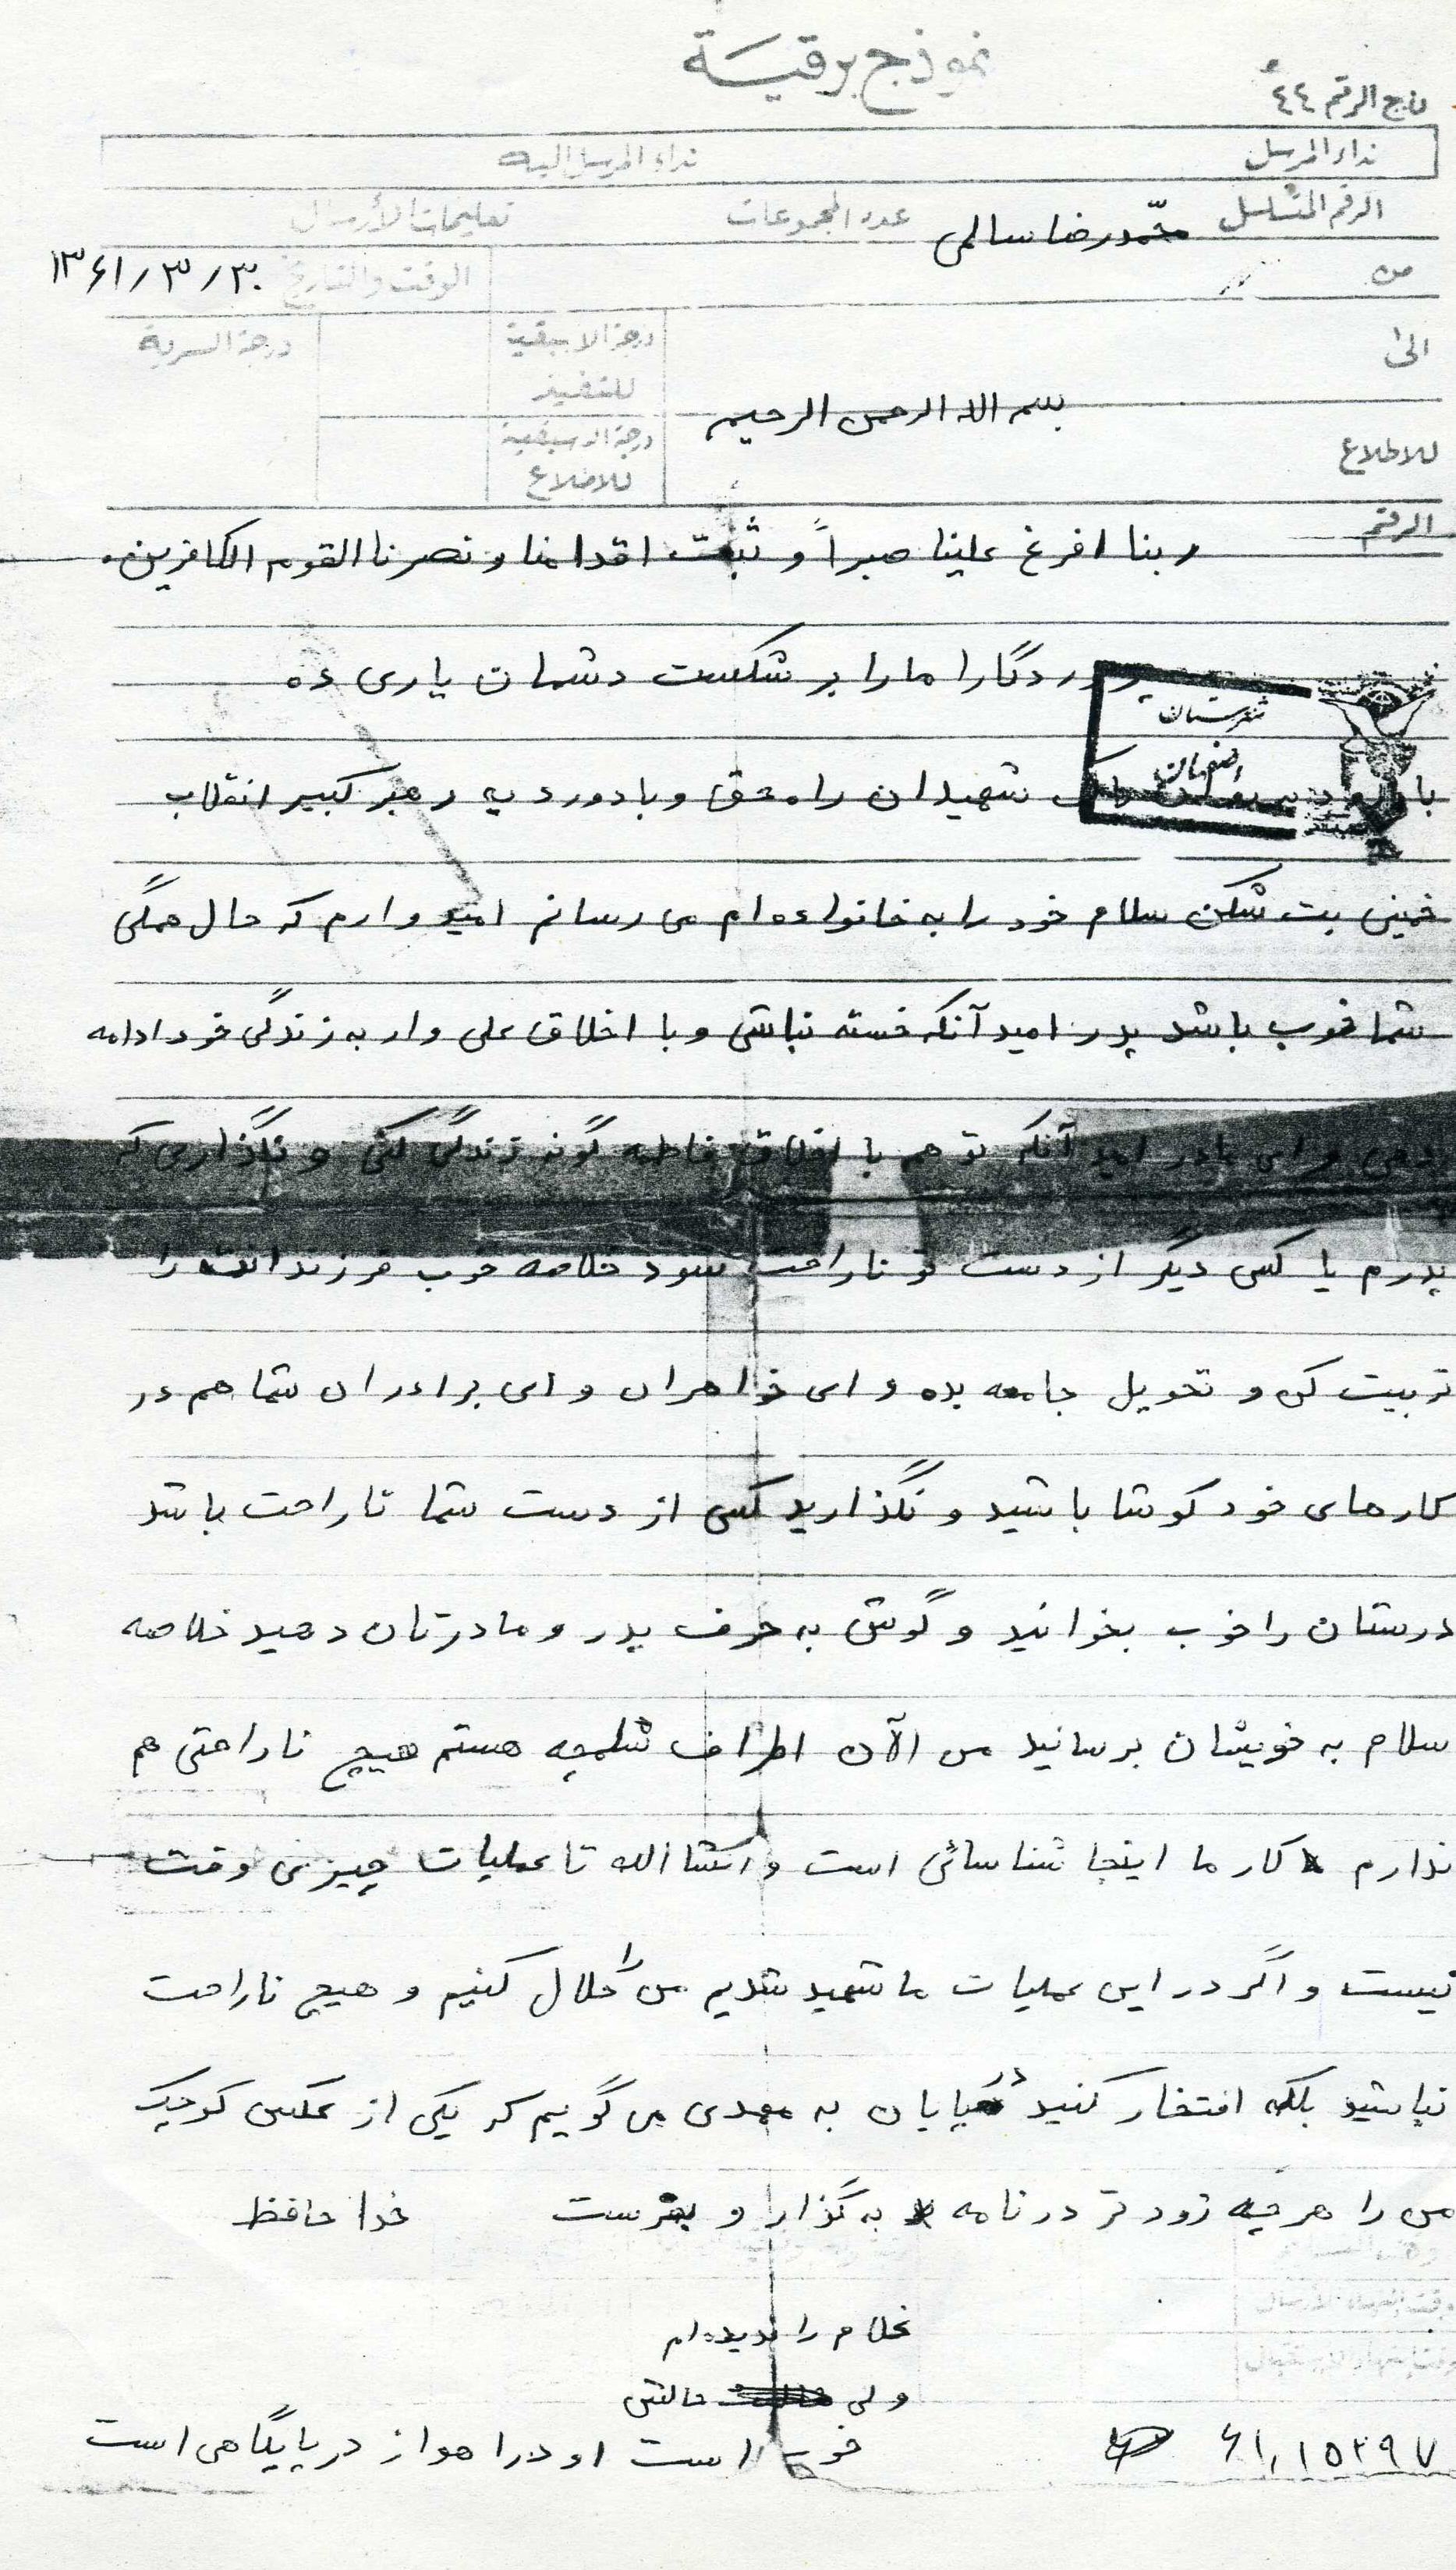 نموذج برقية
ن ج الرقم ٤٤
نداء المرسل نداء المرسل اليه
الرقم المتسلسل محمدرضا سالمی عدد المجموعات تعليمات الأرسال
من الوقت والتاريخ ۱۳۶۱/۳/۳۰
الى درجة الاسبقية للتنفيذ درجة السرية
بسم الله الرحمن الرحیم
للاطلاع درجة الاسبقية للاطلاع
الرقم
ربنا افرغ علینا صبراً و ثبت اقدامنا و نصرنا القوم الکافرین.
پروردگارا ما را بر شکست دشمان یاری ده
شهرستان
اصفهان
با درود به پاک شهیدان راه حق و با دورد به رهبر کبیر انقلاب
خمینی بت شکن سلام خود را به خانواده ام می رسانم امید وارم که حال همگی
شما خوب باشد پدر امید آنکه خسته نباشی و با اخلاق علی وار به زندگی خود ادامه
دهی و ای مادر امید آنکه تو هم با اخلاق فاطمه گونه زندگی کنی و نگذاری که
پدرم یا کسی دیگر از دست تو ناراحت شود خلاصه خوب فرزندانت را
تربیت کن و تحویل جامعه بده و ای خواهران و ای برادران شما هم در
کارهای خود کوشا باشید و نگذارید کسی از دست شما ناراحت باشد
درستان را خوب بخوانید و گوش به حرف پدر و مادرتان دهید خلاصه
سلام به خویشان برسانید من الآن اطراف شلمچه هستم هیچ ناراحتی هم
ندارم کار ما اینجا شناسائی است و انشا الله تا عملیات چیزی وقت
نیست و اگر در این عملیات ما شهید شدیم من را حلال کنیم و هیچ ناراحت
نباشید بلکه افتخار کنید در پایان به مهدی می گویم که یکی از عکس کوچک
من را هر چه زود تر در نامه به گذار و بفرست خدا حافظ
غلام را ندیده ام
ولی حالش
خوب است او در اهواز در پایگاهی است
۶۱,۱۵۲۹۷